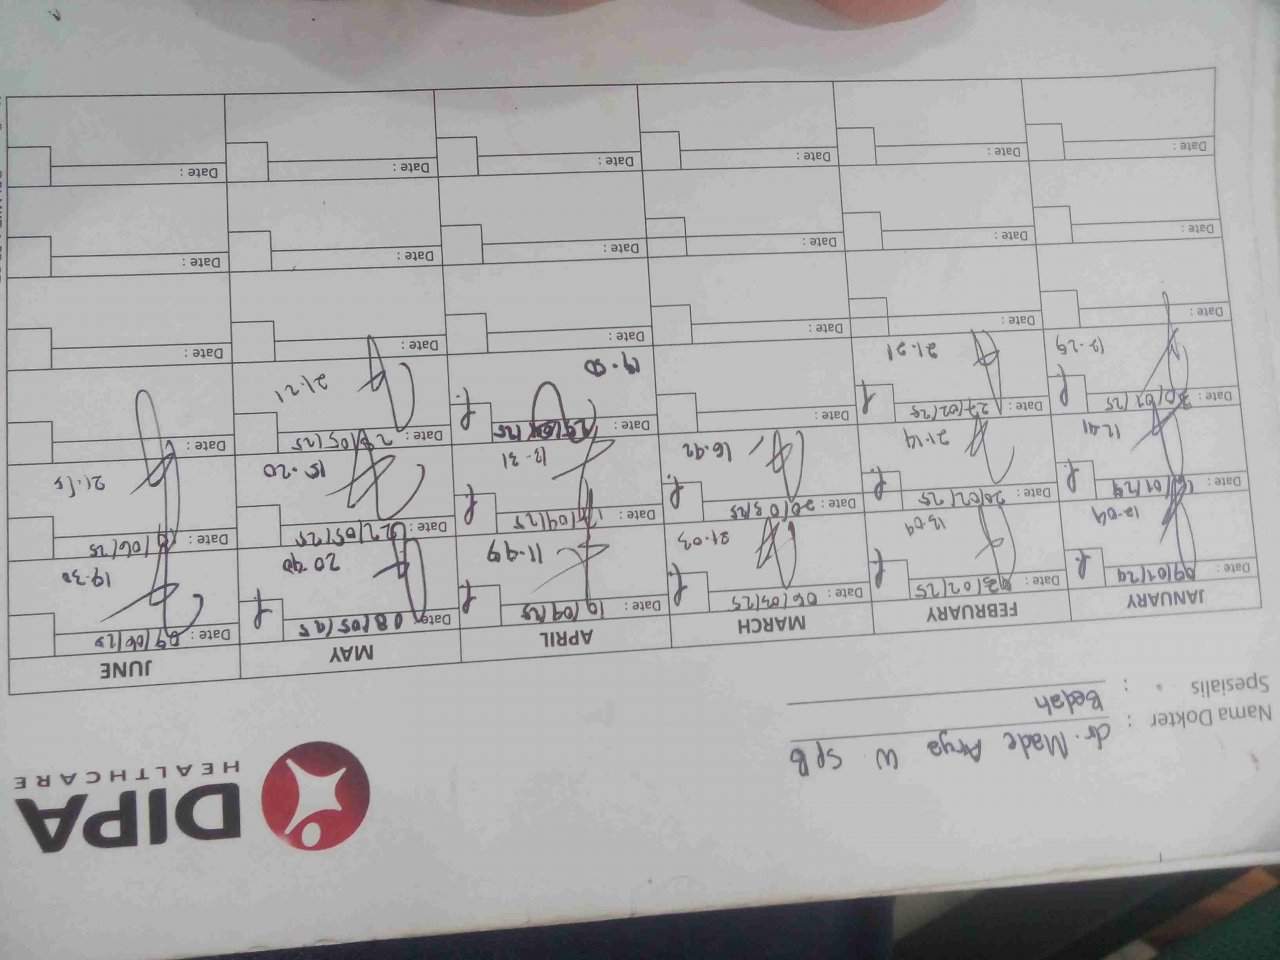 DIPA
HEALTHCARE
Nama Dokter : dr. Made Arya W. SpB
Spesialis : Bedah
JANUARY FEBRUARY MARCH APRIL MAY JUNE
Date : 09/01/24 Date : 03/02/25 Date : 06/03/25 Date : 10/04/25 Date : 08/05/25 Date : 09/06/25
12.04 13.09 21.03 11.49 20.40 19.30
Date : 16/01/24 Date : 20/02/25 Date : 20/03/25 Date : 17/04/25 Date : 22/05/25 Date : /06/25
12.41 21.14 16.42 13.31 15.20 21.15
Date : 30/01/25 Date : 27/02/25 Date : Date : Date : 28/05/25 Date :
12.29 21.21 19.50 21.21
Date : Date : Date : Date : Date : Date :
Date : Date : Date : Date : Date : Date :
Date : Date : Date : Date : Date : Date :